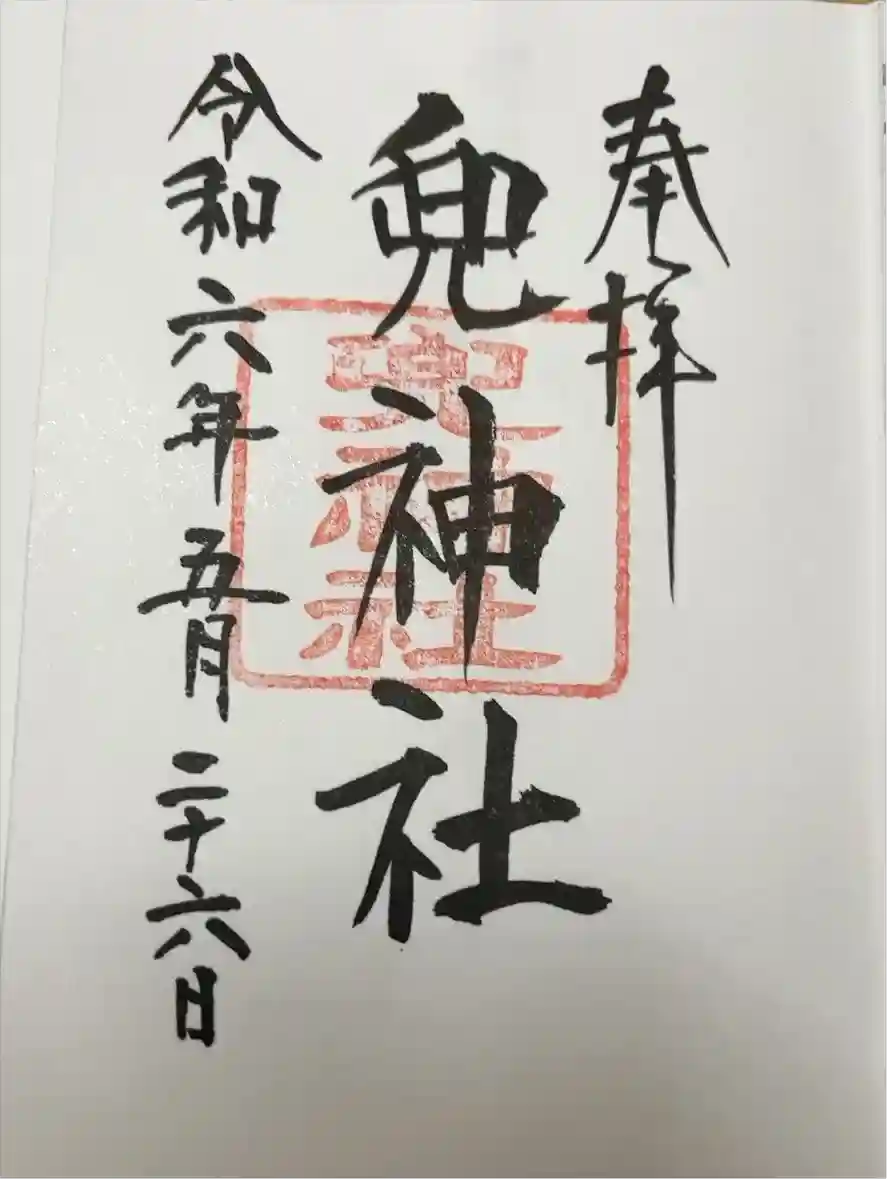 奉拝
兜神社
令和六年五月二十六日
兜神社